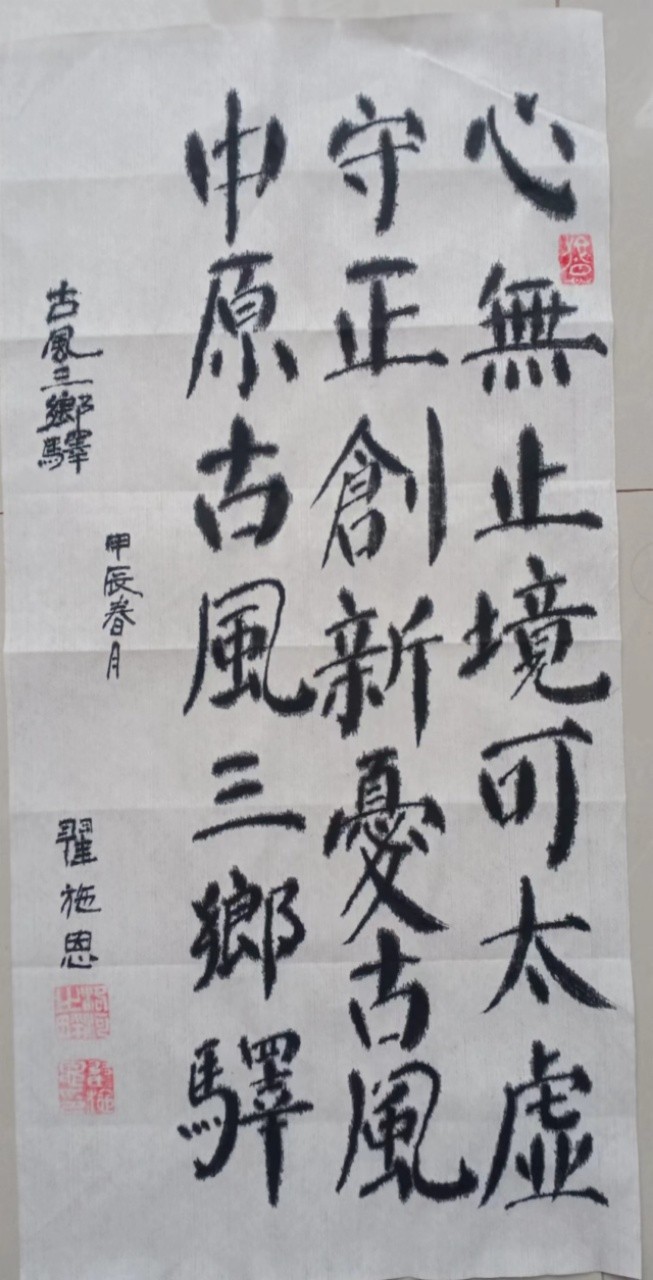 心無止境可太虛
守正創新憂古風
中原古風三鄉驛
古風三鄉驛
甲辰春月
翟施恩